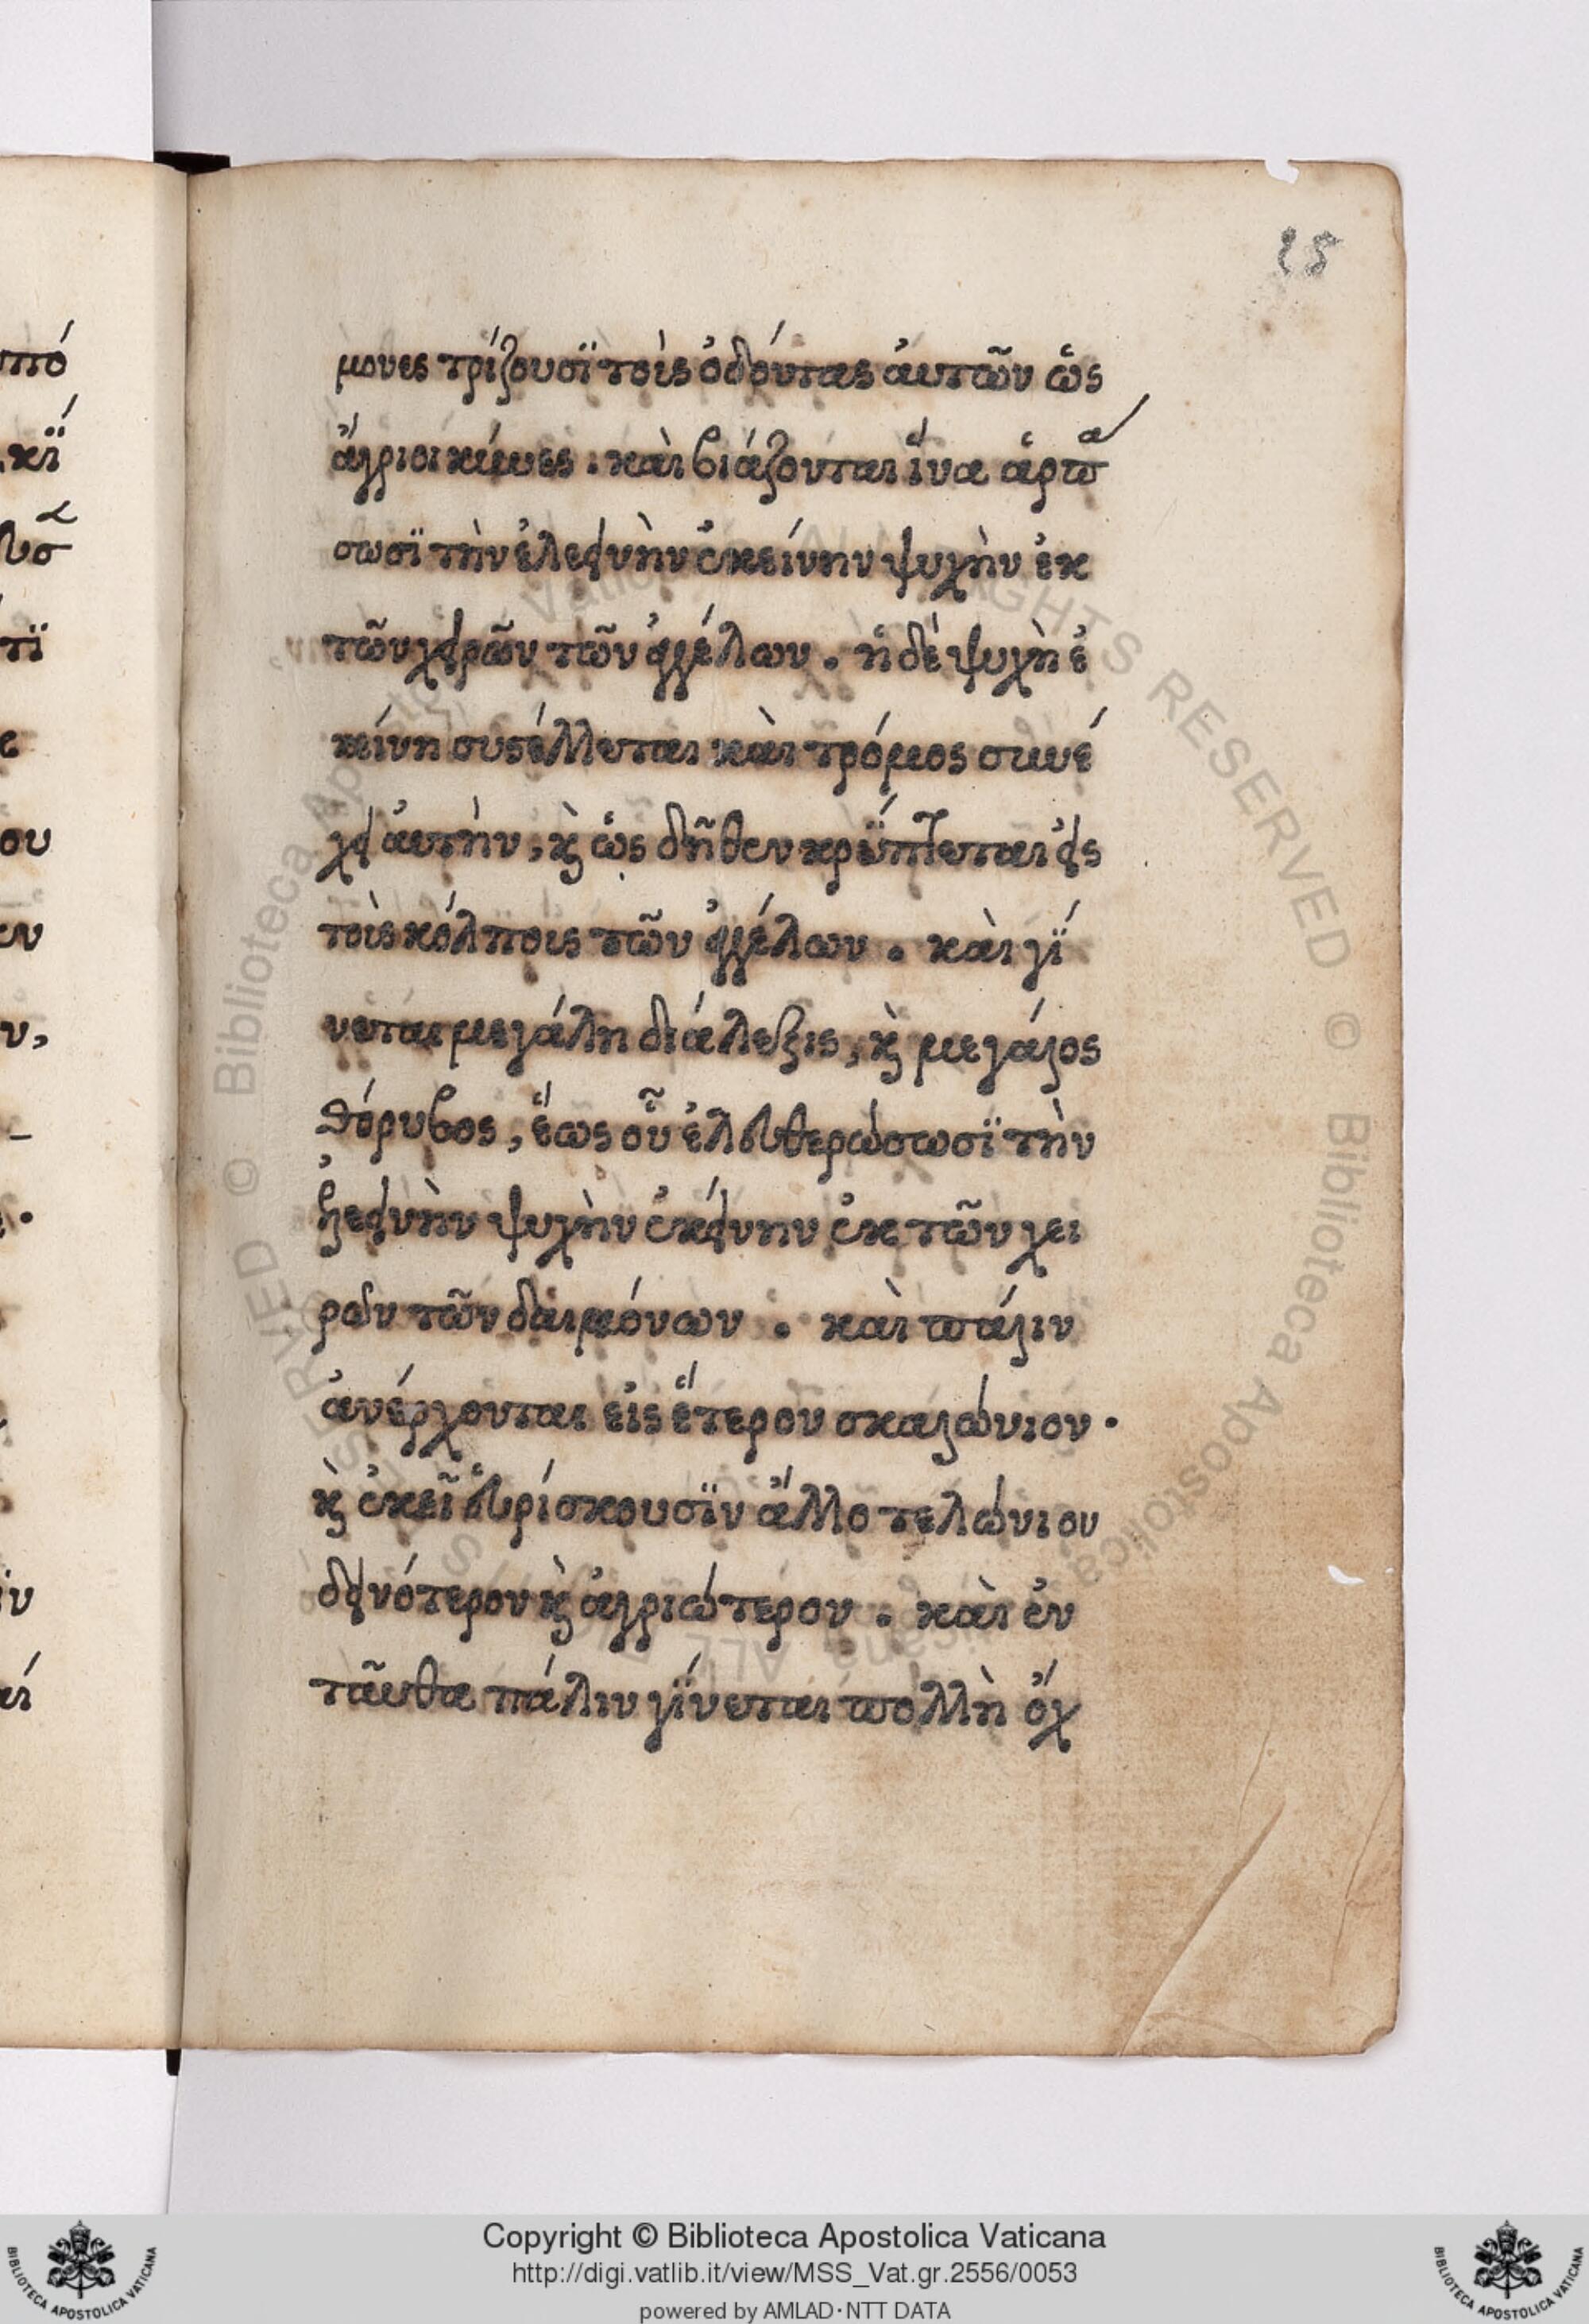 25
μονες τρίζουσϊ τοὶς ὀδόντας ἀυτῶν ὡς
ἄγριοι κύωες . κὰι βιάζονται ἵνα ἁρπά
σωσϊ τὴν ἐλεεινὴν ἐκείνην ψυχὴν ἐκ
τῶν χειρῶν τῶν ἀγγέλων . ἡ δὲ ψυχὴ ἐ
κείνη συστέλλεται κὰι τρόμος συνέ
χει ἀυτὴν, κὶ ὡς δῆθεν κρΰπτεται εἰς
τοὶς κόλποις τῶν ἀγγέλων . κὰι γΐ
νεται μεγάλη διάλεξις, κὶ μεγάλος
θόρυβος, ἕως οὗ ἐλευθερώσωσϊ τὴν
ἐλεεινὴν ψυχὴν ἐκείνην ἐκ τῶν χει
ρῶν τῶν δαιμόνων . κὰι πάλιν
ἀνέρχονται εἰς ἕτερον σκαλώνιον .
κὶ ἐκεῖ ἑυρίσκουσϊν ἄλλο τελώνιον
δεινότερον κὶ ἀγριώτερον . κὰι ἐν
ταῦθα πάλιν γΐνεται πολλὴ ὄχ
πό
κΐ
τϊ
ου
εν
ν,
ϊν
αί
Copyright © Biblioteca Apostolica Vaticana
http://digi.vatlib.it/view/MSS_Vat.gr.2556/0053
powered by AMLAD·NTT DATA
BIBLIOTECA APOSTOLICA VATICANA
BIBLIOTECA APOSTOLICA VATICANA